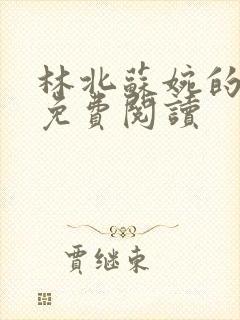 林北蘇婉的
免費閱讀
賈继東